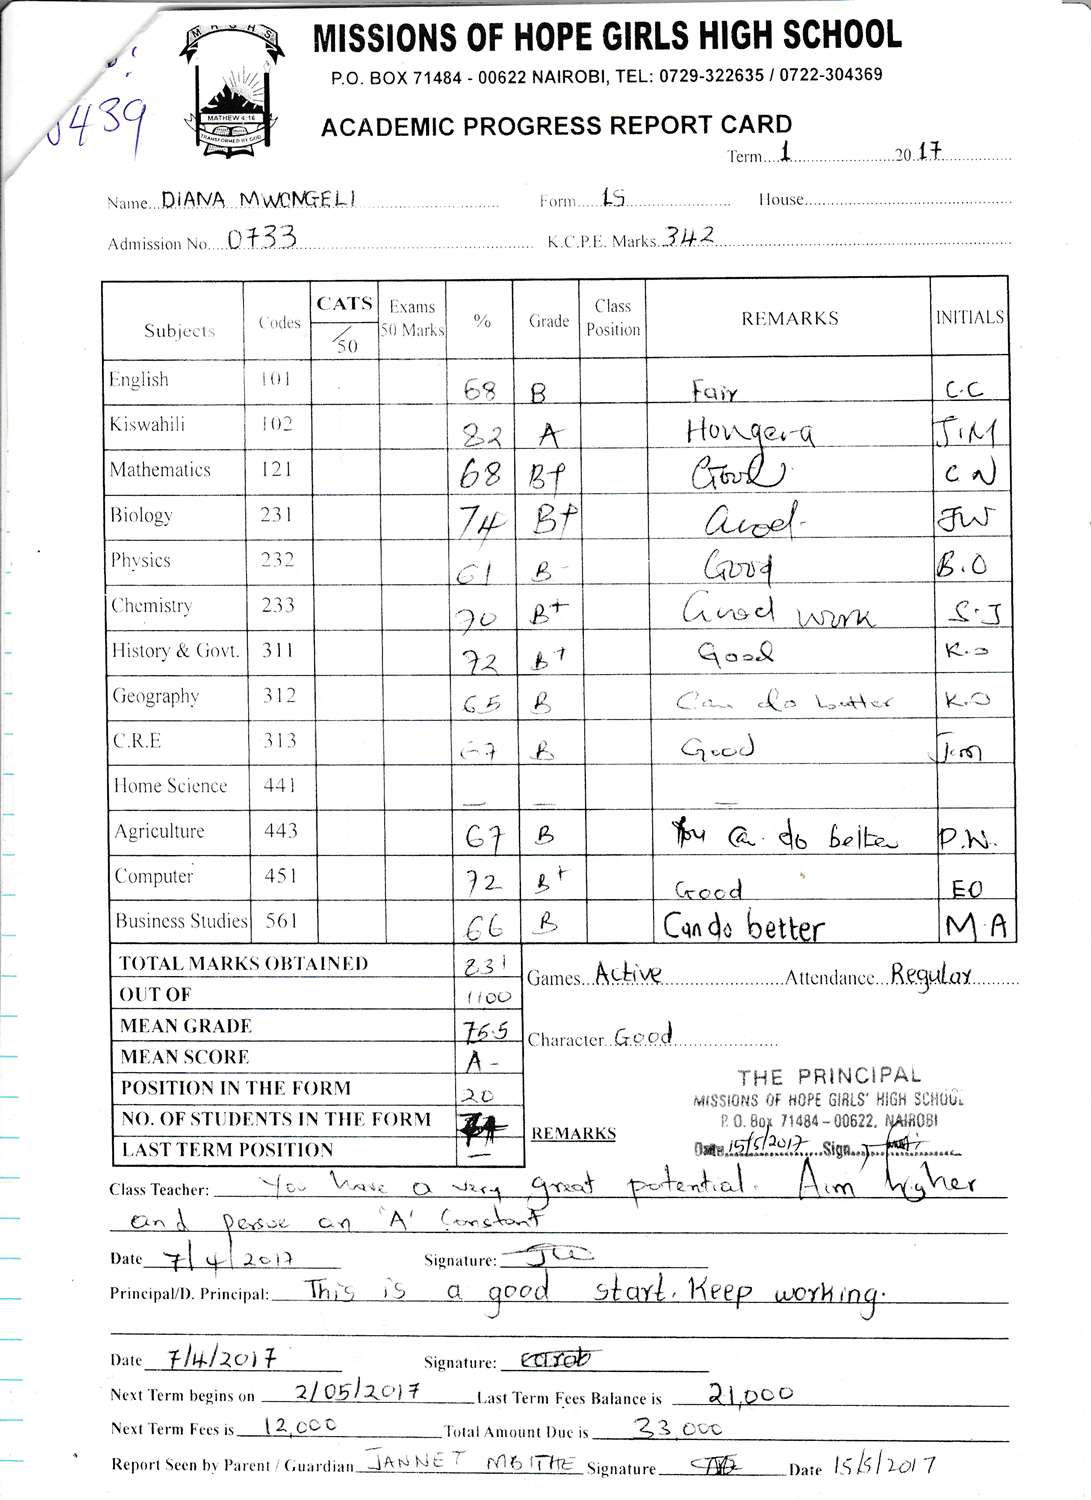 MISSIONS OF HOPE GIRLS HIGH SCHOOL
P.O. BOX 71484 - 00622 NAIROBI, TEL: 0729-322635 / 0722-304369
M H G H S
MATHEW 4:16
TRANSFORMED BY GOD
439
ACADEMIC PROGRESS REPORT CARD
Term 1 2017
Name DIANA MWONGELI Form 1S House
Admission No. 0733 K.C.P.E. Marks 342
Subjects Codes CATS /50 Exams 50 Marks % Grade Class Position REMARKS INITIALS
English 101 68 B Fair C.C
Kiswahili 102 82 A Hongera J.M
Mathematics 121 68 B+ Good C N
Biology 231 74 B+ Good JW
Physics 232 61 B- Good B.O
Chemistry 233 70 B+ Good work S.J
History & Govt. 311 72 B+ Good K.O
Geography 312 65 B Can do better K.O
C.R.E 313 67 B Good J.M
Home Science 441 — — —
Agriculture 443 67 B You can do better P.W.
Computer 451 72 B+ Good EO
Business Studies 561 66 B Can do better M.A
TOTAL MARKS OBTAINED 831
OUT OF 1100
MEAN GRADE 75.5
MEAN SCORE A-
POSITION IN THE FORM 20
NO. OF STUDENTS IN THE FORM
LAST TERM POSITION —
Games Active Attendance Regular
Character Good
THE PRINCIPAL
MISSIONS OF HOPE GIRLS' HIGH SCHOOL
P. O. Box 71484 - 00622, NAIROBI
Date 15/5/2017 Sign
REMARKS
Class Teacher: You have a very great potential. Aim higher
and persue an 'A' Constant
Date 7/4/2017 Signature:
Principal/D. Principal: This is a good start. Keep working.
Date 7/4/2017 Signature:
Next Term begins on 2/05/2017 Last Term Fees Balance is 21,000
Next Term Fees is 12,000 Total Amount Due is 33,000
Report Seen by Parent / Guardian JANNET MBITHE Signature Date 15/5/2017